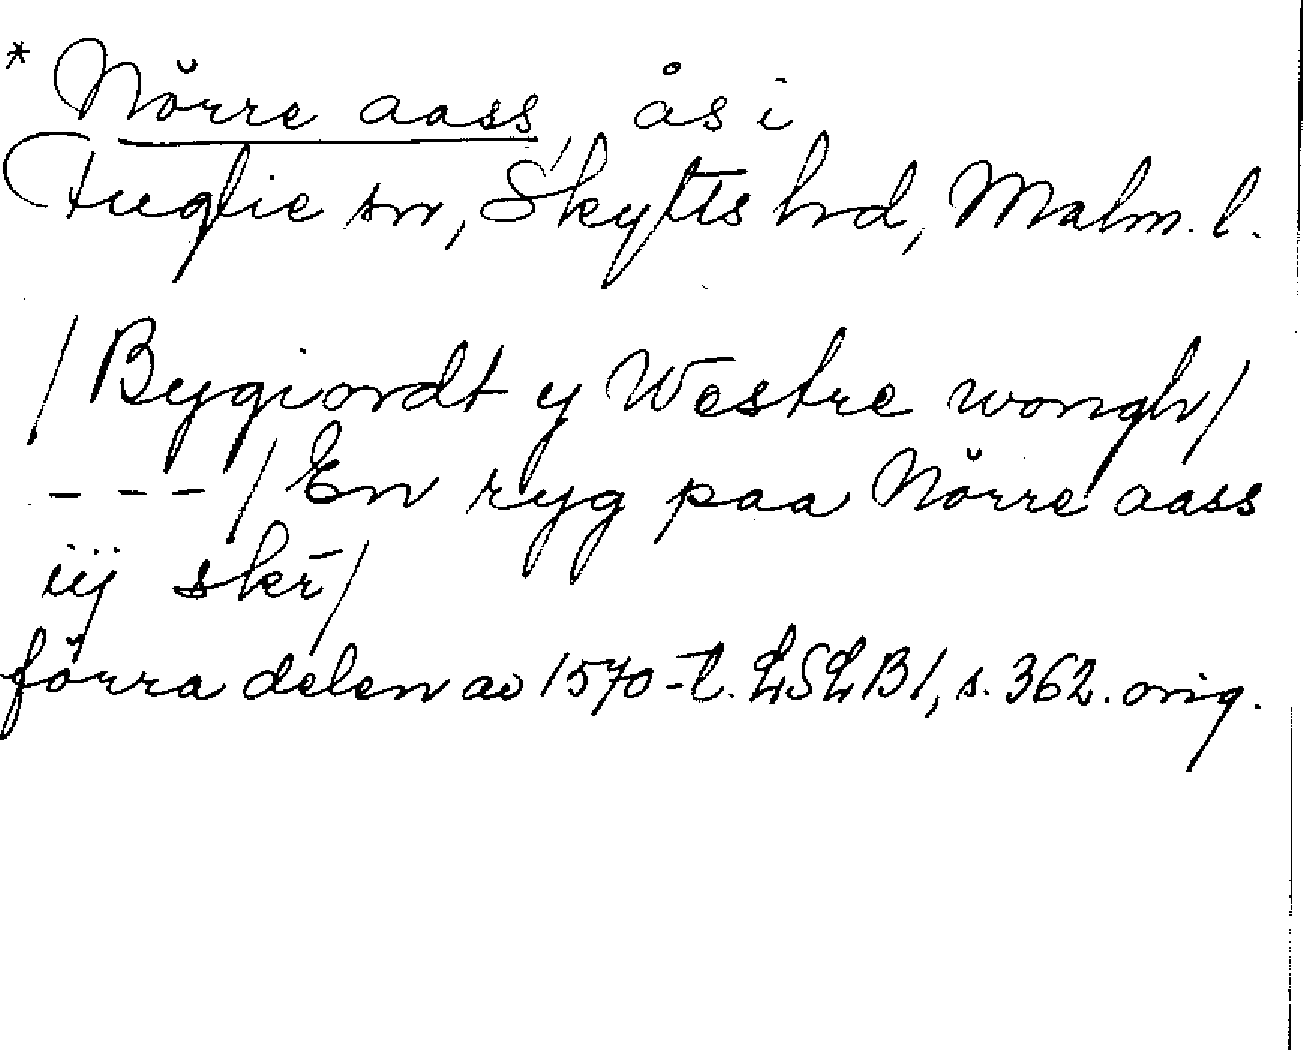 * Nörre aass, ås i
Fuglie sn, Skytts hd, Malm. l.
/Bygiordt y Westre wongh/
- - - /En ryg paa Nörre aass
iij skr̄/
förra delen av 1570-t. LSLB1, s. 362. orig.